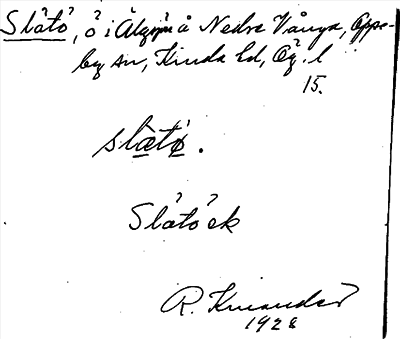 Slätö, ö i Älgsjön å Nedre Vånga, Oppe-
by sn, Kinda hd, Ög. l
15.
slätö.
Slätöek
R. Kinander
1928